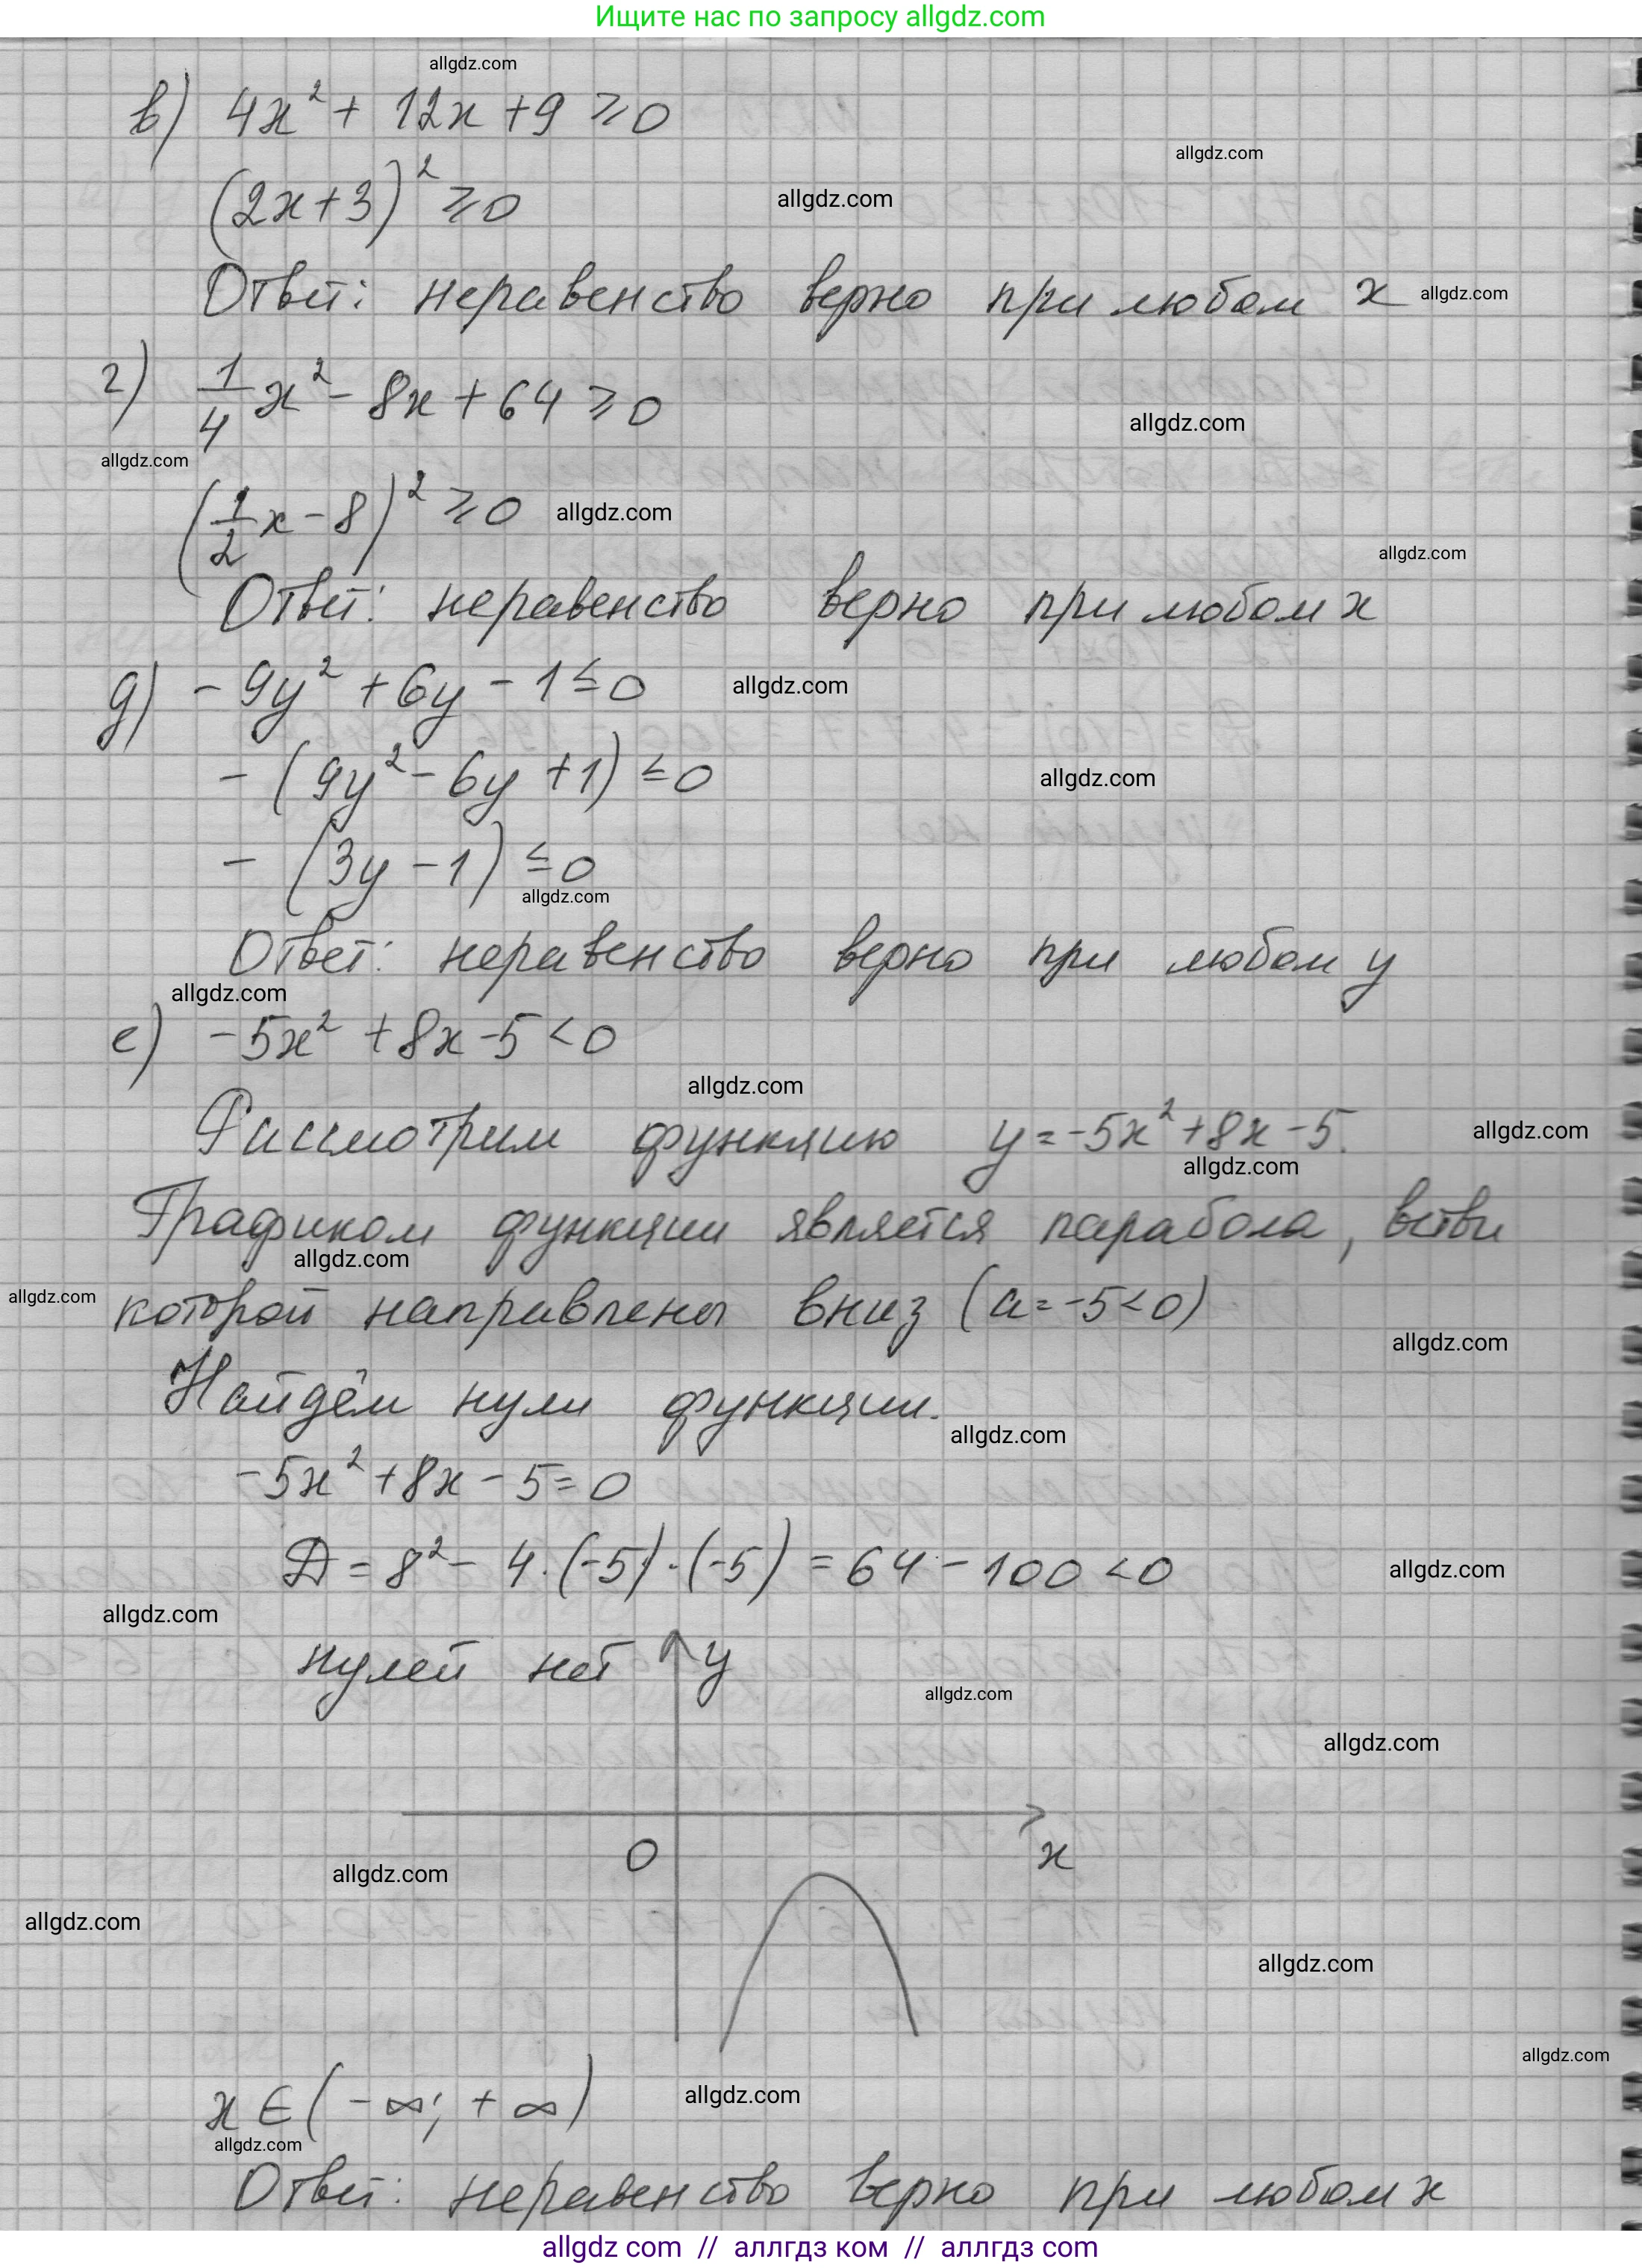 Ищите нас по запросу allgdz.com
allgdz.com
в) 4x² + 12x + 9 ⩾ 0
allgdz.com
(2x+3)² ⩾ 0 allgdz.com
Ответ: неравенство верно при любом x allgdz.com
г) 1/4 x² - 8x + 64 ⩾ 0
allgdz.com
allgdz.com
(1/2 x - 8)² ⩾ 0 allgdz.com
allgdz.com
Ответ: неравенство верно при любом x
д) -9y² + 6y - 1 ≤ 0 allgdz.com
-(9y² - 6y + 1) ≤ 0 allgdz.com
-(3y - 1) ≤ 0
allgdz.com
Ответ: неравенство верно при любом y
allgdz.com
е) -5x² + 8x - 5 < 0
allgdz.com
Рассмотрим функцию y = -5x² + 8x - 5. allgdz.com
allgdz.com
Графиком функции является парабола, ветви
allgdz.com
allgdz.com которой направлены вниз (a = -5 < 0)
allgdz.com
Найдём нули функции.
allgdz.com
-5x² + 8x - 5 = 0
D = 8² - 4·(-5)·(-5) = 64 - 100 < 0 allgdz.com
allgdz.com
нулей нет y
allgdz.com
allgdz.com
0 x
allgdz.com
allgdz.com
allgdz.com
allgdz.com
x ∈ (-∞; +∞) allgdz.com
allgdz.com
Ответ: неравенство верно при любом x
allgdz com // аллгдз ком // аллгдз com